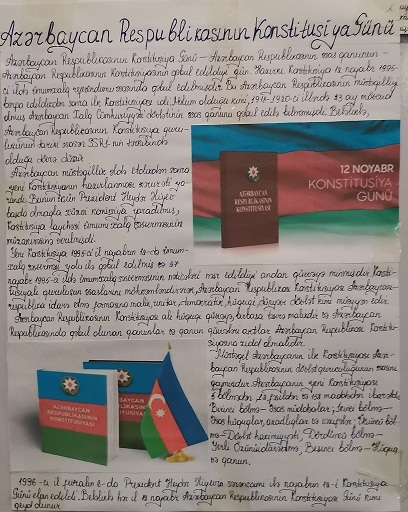 Azərbaycan Respublikasının Konstitusiya Günü
Azərbaycan Respublikasının Konstitusiya Günü – Azərbaycan Respublikasının əsas qanununun –
Azərbaycan Respublikasının Konstitusiyasının qəbul edildiyi gün. Hazırkı Konstitusiya 12 noyabr 1995-
ci ildə ümumxalq referendumu əsasında qəbul edilmişdir. Bu Azərbaycan Respublikasının müstəqilliyi
bərpa edildikdən sonra ilk Konstitusiyası idi. Məlum olduğu kimi, 1918-1920-ci illərdə 23 ay mövcud
olmuş Azərbaycan Xalq Cümhuriyyəti dövlətinin əsas qanunu qəbul edilə bilməmişdi. Beləliklə,
Azərbaycan Respublikasının Konstitusiya quru-
culuğunun tarixi əsasən SSRİ-nin tərkibində
olduğu dövrə düşür.
Azərbaycan müstəqillik əldə etdikdən sonra
yeni Konstitusiyanın hazırlanması zərurəti ya-
randı. Bunun üçün Prezident Heydər Əliyev
başda olmaqla xüsusi komissiya yaradılmış,
Konstitusiya layihəsi ümumxalq
müzakirəsinə verilmişdi.
Yeni Konstitusiya 1995-ci il noyabrın 12-də ümum-
xalq səsverməsi yolu ilə qəbul edilmiş və 27
noyabr 1995-ci ildə ümumxalq səsverməsinin nəticələri nəşr edildiyi andan qüvvəyə minmişdir. Konsti-
tusiyalı quruluşun əsaslarını möhkəmləndirərək, Azərbaycan Respublikası Konstitusiyası Azərbaycanı
respublika idarə etmə formasına malik, unitar, demokratik, hüquqi, dünyəvi dövlət kimi müəyyən edir.
Azərbaycan Respublikasının Konstitusiyası ali hüquqi qüvvəyə, birbaşa təsirə malikdir və Azərbaycan
Respublikasında qəbul olunan qanunlar və qanun qüvvəli aktlar Azərbaycan Respublikası Konstitu-
siyasına zidd olmamalıdır.
Müstəqil Azərbaycanın ilk Konstitusiyası Azər-
baycan Respublikasının dövlət quruculuğunun əsasını
qoymuşdur. Azərbaycanın yeni Konstitusiyası
5 bölmədən, 12 fəsildən və 158 maddədən ibarətdir.
Birinci bölmə – Əsas müddəalar; İkinci bölmə –
Əsas hüquqlar, azadlıqlar və vəzifələr; Üçüncü böl-
mə – Dövlət hakimiyyəti; Dördüncü bölmə –
Yerli Özünüidarəetmə; Beşinci bölmə – Hüquq
və qanun.
1996-cı il fevralın 6-da Prezident Heydər Əliyevin sərəncamı ilə noyabrın 12-i Konstitusiya
Günü elan edildi. Beləliklə hər il 12 noyabr Azərbaycan Respublikasının Konstitusiya Günü kimi
qeyd olunur.
AZƏRBAYCAN
RESPUBLİKASININ
KONSTİTUSİYASI
12 NOYABR
KONSTİTUSİYA
GÜNÜ
AZƏRBAYCAN
RESPUBLİKASININ
KONSTİTUSİYASI